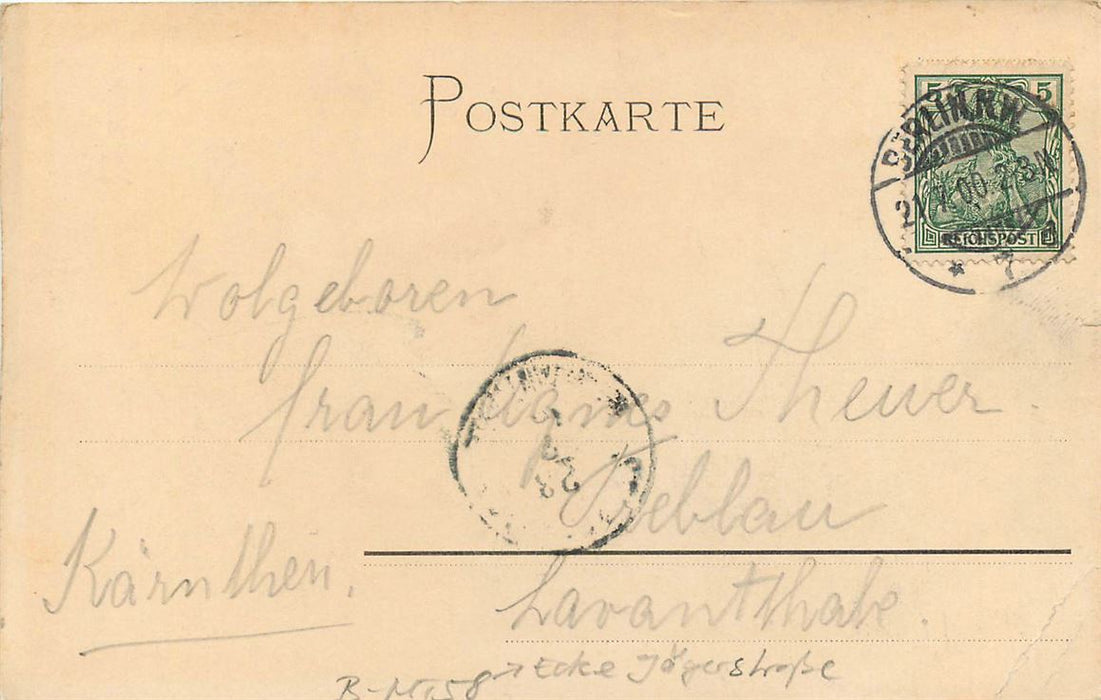 POSTKARTE
5 5
BERLIN N.W.
21.7.00.2-3N.
REICHSPOST
* 7
Wolgeboren
frau Agnes Thewer.
Preblau
Kärnthen.
Lavantthale.
23
→ Ecke Jägerstraße